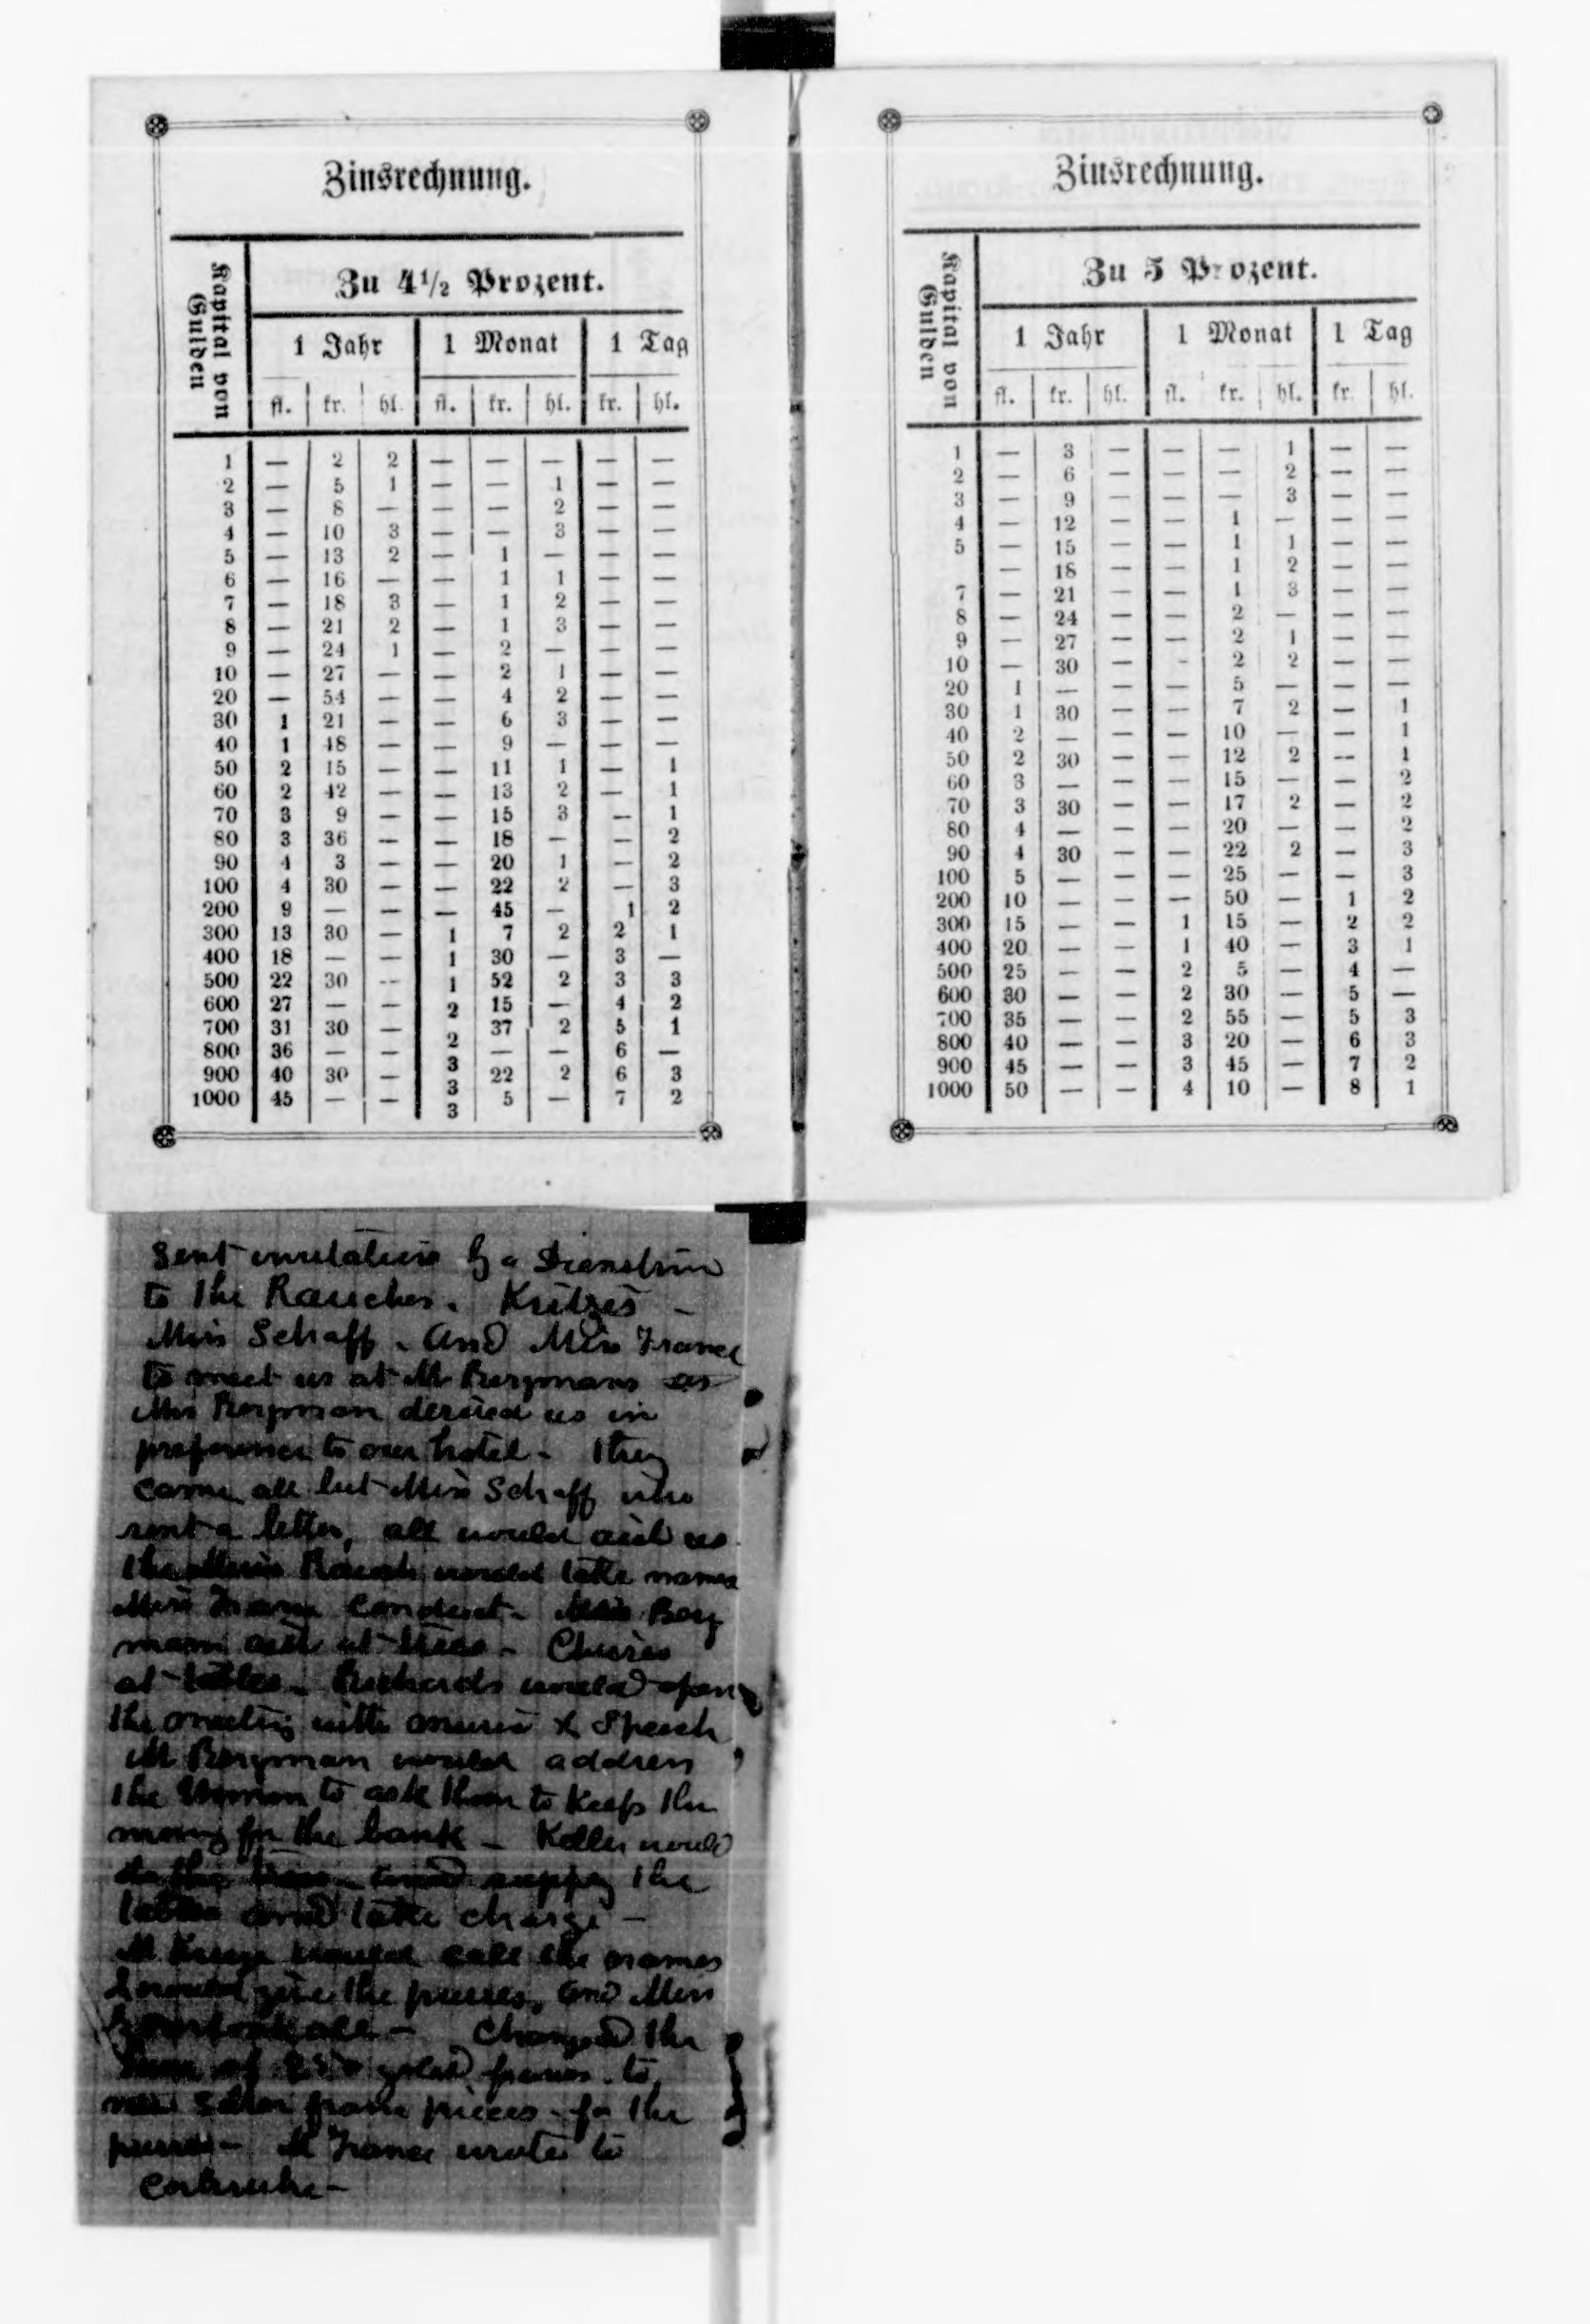 Zinsrechnung.
Kapital von Gulden
Zu 4½ Prozent.
1 Jahr 1 Monat 1 Tag
fl. kr. hl. fl. kr. hl. kr. hl.
1 — 2 2 — — — — —
2 — 5 1 — — 1 — —
3 — 8 — — — 2 — —
4 — 10 3 — — 3 — —
5 — 13 2 — 1 — — —
6 — 16 — — 1 1 — —
7 — 18 3 — 1 2 — —
8 — 21 2 — 1 3 — —
9 — 24 1 — 2 — — —
10 — 27 — — 2 1 — —
20 — 54 — — 4 2 — —
30 1 21 — — 6 3 — —
40 1 48 — — 9 — — —
50 2 15 — — 11 1 — 1
60 2 42 — — 13 2 — 1
70 3 9 — — 15 3 — 1
80 3 36 — — 18 — — 2
90 4 3 — — 20 1 — 2
100 4 30 — — 22 2 — 3
200 9 — — — 45 — 1 2
300 13 30 — 1 7 2 2 1
400 18 — — 1 30 — 3 —
500 22 30 — 1 52 2 3 3
600 27 — — 2 15 — 4 2
700 31 30 — 2 37 2 5 1
800 36 — — 3 — — 6 —
900 40 30 — 3 22 2 6 3
1000 45 — — 3 5 — 7 2
Zinsrechnung.
Kapital von Gulden
Zu 5 Prozent.
1 Jahr 1 Monat 1 Tag
fl. kr. hl. fl. kr. hl. kr. hl.
1 — 3 — — — 1 — —
2 — 6 — — — 2 — —
3 — 9 — — — 3 — —
4 — 12 — — 1 — — —
5 — 15 — — 1 1 — —
— 18 — — 1 2 — —
7 — 21 — — 1 3 — —
8 — 24 — — 2 — — —
9 — 27 — — 2 1 — —
10 — 30 — - 2 2 — —
20 1 — — — 5 — — —
30 1 30 — — 7 2 — 1
40 2 — — — 10 — — 1
50 2 30 — — 12 2 -- 1
60 3 — — — 15 — — 2
70 3 30 — — 17 2 — 2
80 4 — — — 20 — — 2
90 4 30 — — 22 2 — 3
100 5 — — — 25 — — 3
200 10 — — — 50 — 1 2
300 15 — — 1 15 — 2 2
400 20 — — 1 40 — 3 1
500 25 — — 2 5 — 4 —
600 30 — — 2 30 — 5 —
700 35 — — 2 55 — 5 3
800 40 — — 3 20 — 6 3
900 45 — — 3 45 — 7 2
1000 50 — — 4 10 — 8 1
Sent invitations by a
to the Rauches.
Miss Schaff. And Miss France
to meet us at M Bergmans as
Mrs Bergman desired us in
preference to our hotel - They
came all but Miss Schaff who
sent a letter, all would aid us.
would take names
Miss France Conduct - Miss Berg
man aid at trees -
at tables - Richards would open
the meeting with music & Speech
M Bergman would address
the Women to ask them to keep the
money for the bank - Keller would
supply the
tables and take charge -
M would call the names
I would give the purses, and Miss
Changed the
sum of gold francs to
new silver franc pieces for the
purses - M France wrote to
Carlsruhe -